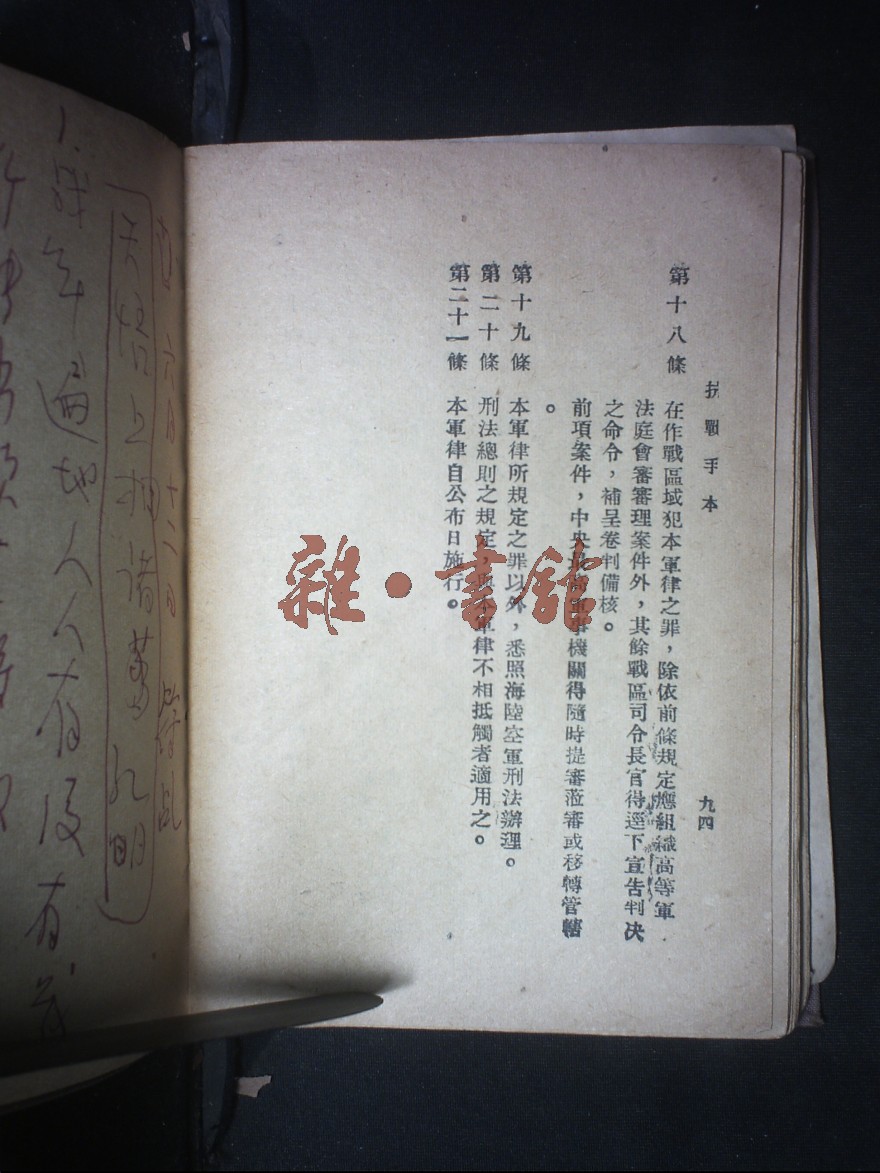 抗戰手本
九四
第十八條
在作戰區域犯本軍律之罪，除依前條規定應組織高等軍
法庭會審審理案件外，其餘戰區司令長官得逕下宣告判決
之命令，補呈卷判備核。
前項案件，中央最高軍事機關得隨時提審蒞審或移轉管轄
。
第十九條
本軍律所規定之罪以外，悉照海陸空軍刑法辦理。
第二十條
刑法總則之規定，與本軍律不相抵觸者適用之。
第二十一條
本軍律自公布日施行。
雜·書館
六日十二日
諸葛孔明
年遍地人人有没有